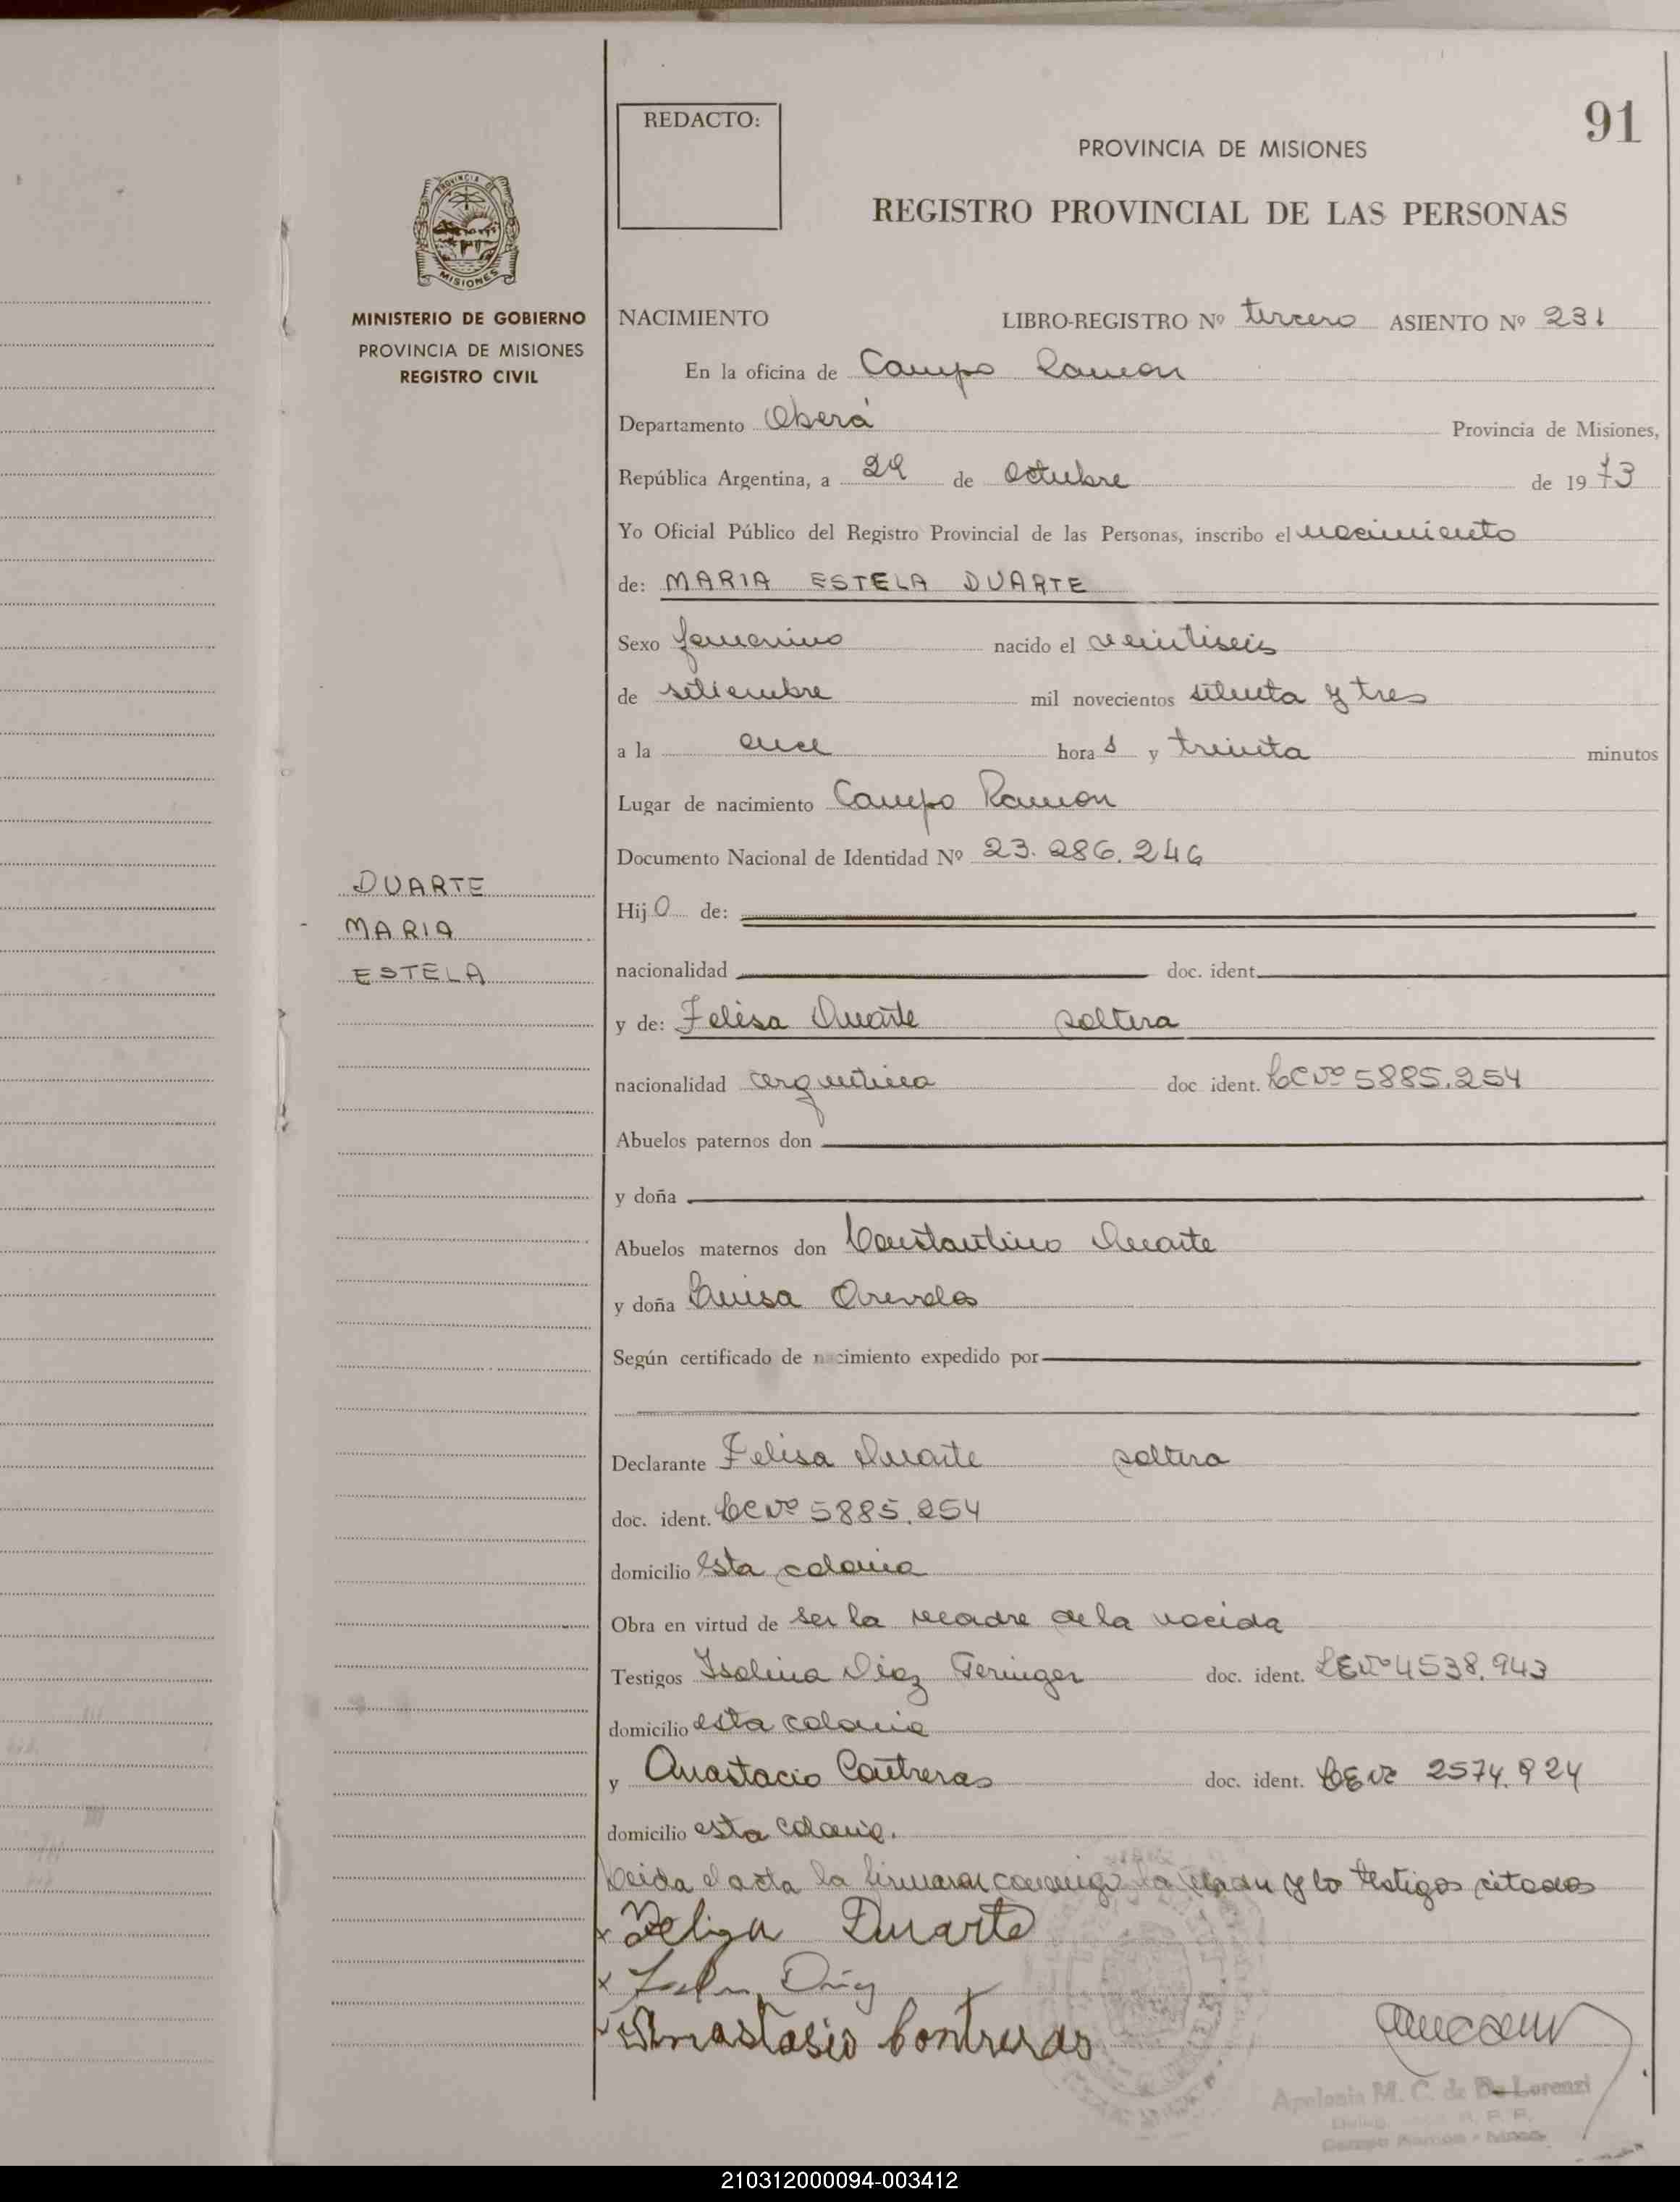 91
REDACTO:
PROVINCIA DE MISIONES
REGISTRO PROVINCIAL DE LAS PERSONAS
PROVINCIA DE
MISIONES
MINISTERIO DE GOBIERNO
PROVINCIA DE MISIONES
REGISTRO CIVIL
NACIMIENTO LIBRO-REGISTRO Nº tercero ASIENTO Nº 231
En la oficina de Campo Ramon
Departamento Oberá Provincia de Misiones,
República Argentina, a 29 de Octubre de 1973
Yo Oficial Público del Registro Provincial de las Personas, inscribo el nacimiento
de: MARIA ESTELA DUARTE
Sexo femenino nacido el veintiseis
de setiembre mil novecientos setenta y tres
a la once hora s y treinta minutos
Lugar de nacimiento Campo Ramon
Documento Nacional de Identidad Nº 23.286.246
DUARTE
MARIA
ESTELA
Hij o de:
nacionalidad doc. ident.
y de: Felisa Duarte soltera
nacionalidad argentina doc ident. LC Nº 5885.254
Abuelos paternos don
y doña
Abuelos maternos don Constantino Duarte
y doña Luisa
Según certificado de nacimiento expedido por
Declarante Felisa Duarte soltera
doc. ident. LC Nº 5885.254
domicilio esta colonia
Obra en virtud de ser la madre de la nacida
Testigos Isolina Diaz Feringer doc. ident. LE Nº 4538.943
domicilio esta colonia
y Anastacio Contreras doc. ident. LE Nº 2574.924
domicilio esta colonia.
Leida el acta la firmaran conmigo la madre y lo testigos citados
x Feliza Duarte
x Diaz
x Anastasio Contreras
Apolonia M. C. de De Lorenzi
210312000094-003412